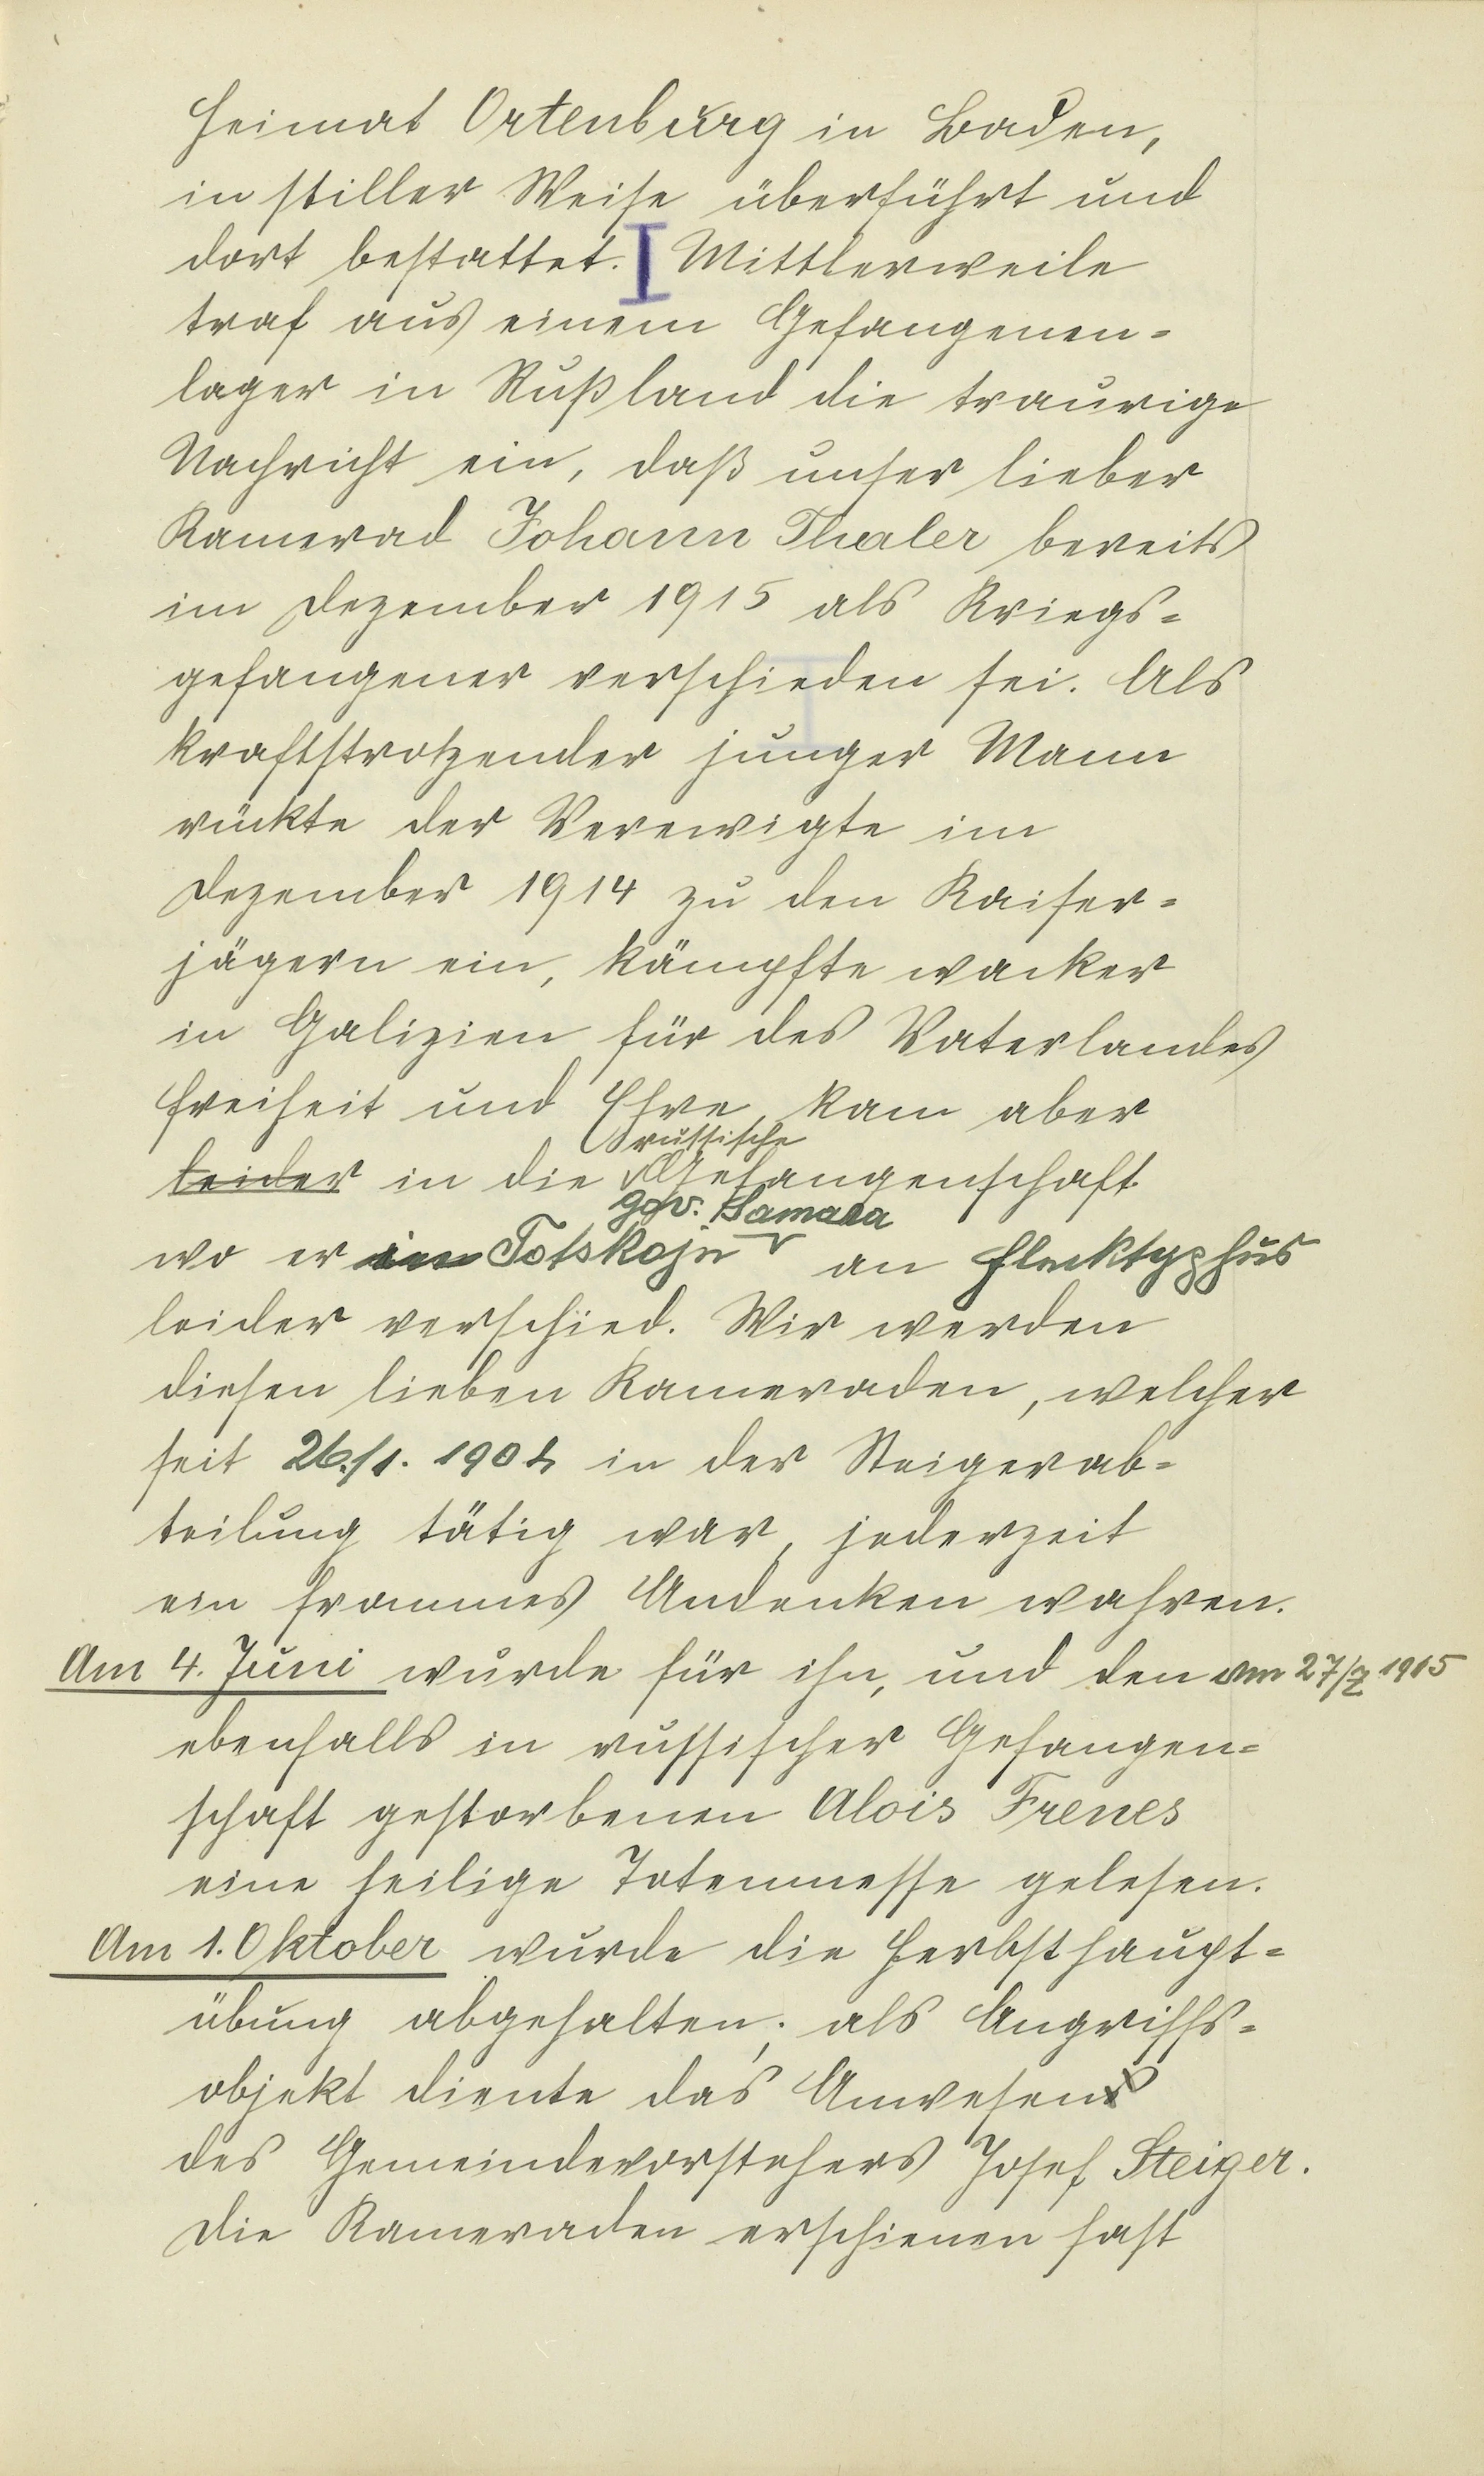 Heimat Ortenburg in Baden,
in stiller Weise überführt und
dort bestattet. Mittlerweile
traf aus einem Gefangenen=
lager in Rußland die traurige
Nachricht ein, daß unser lieber
Kamerad Johann Thaler bereits
im Dezember 1915 als Kriegs=
gefangener verschieden sei. Als
kraftstrotzender junger Mann
rückte der Verewigte im
Dezember 1914 zu den Kaiser=
jägern ein, kämpfte wacker
in Galizien für des Vaterlandes
Freiheit und Ehre, kam aber
russische
leider in die Gefangenschaft
gov. Samara
wo er in Totskoje an Flecktyphus
leider verschied. Wir werden
diesen lieben Kameraden, welcher
seit 26./1. 1902 in der Steigerab=
teilung tätig war, jederzeit
ein frommes Andenken wahren.
Am 4. Juni wurde für ihn, und den am 27/2 1915
ebenfalls in russischer Gefangen=
schaft gestorbenen Alois Frenes
eine heilige Totenmesse gelesen.
Am 1. Oktober wurde die Herbsthaupt=
übung abgehalten; als Angriffs=
objekt diente das Anwesen
des Gemeindevorstehers Josef Steiger.
Die Kameraden erschienen fast